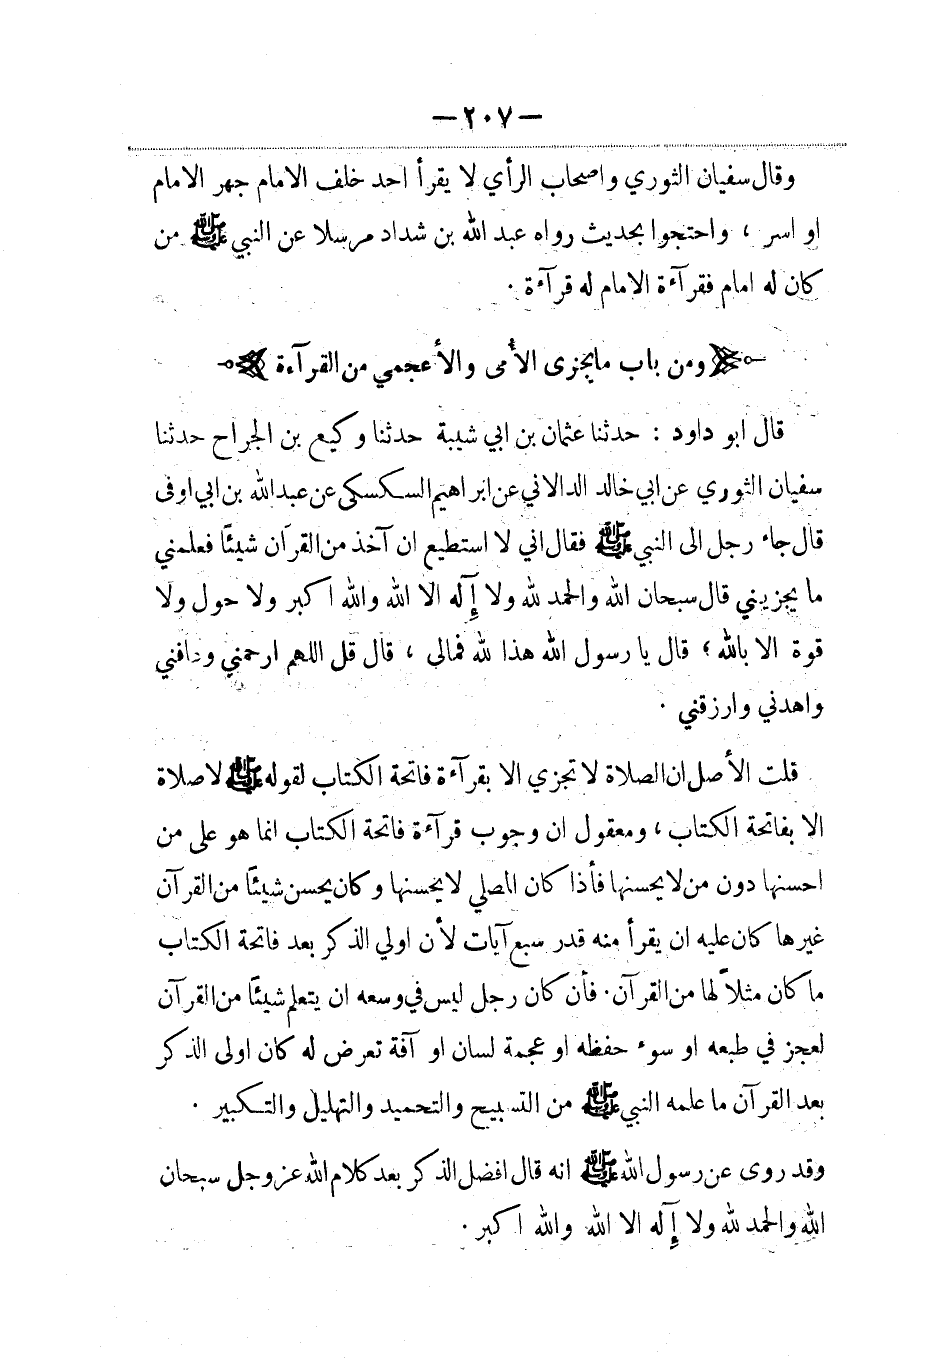 — ٢٠٧ —
وقال سفيان الثوري واصحاب الرأي لا يقرأ احد خلف الامام جهر الامام
او اسر ، واحتجوا بحديث رواه عبد الله بن شداد مرسلا عن النبي ﷺ من
كان له امام فقرآءة الامام له قرآءة .
ومن باب مايجزى الأمى والأعجمي من القرآءة
قال ابو داود : حدثنا عثمان بن ابي شيبة حدثنا وكيع بن الجراح حدثنا
سفيان الثوري عن ابي خالد الدالاني عن ابراهيم السكسكى عن عبد الله بن ابي اوفى
قال جاء رجل الى النبي ﷺ فقال اني لا استطيع ان آخذ من القرآن شيئًا فعلمني
ما يجزيني قال سبحان الله والحمد لله ولا إآله الا الله والله اكبر ولا حول ولا
قوة الا بالله ؛ قال يا رسول الله هذا لله فمالي ، قال قل اللهم ارحمني وعافني
واهدني وارزقني .
قلت الأصل ان الصلاة لا تجزي الا بقرآءة فاتحة الكتاب لقوله ﷺ لا صلاة
الا بفاتحة الكتاب ، ومعقول ان وجوب قرآءة فاتحة الكتاب انما هو على من
احسنها دون من لا يحسنها فأذا كان المصلي لا يحسنها وكان يحسن شيئًا من القرآن
غيرها كان عليه ان يقرأ منه قدر سبع آيات لأن اولي الذكر بعد فاتحة الكتاب
ما كان مثلاً لها من القرآن . فأن كان رجل ليس في وسعه ان يتعلم شيئًا من القرآن
لعجز في طبعه او سوء حفظه او عجمة لسان او آفة تعرض له كان اولى الذكر
بعد القرآن ما علمه النبي ﷺ من التسبيح والتحميد والتهليل والتكبير .
وقد روى عن رسول الله ﷺ انه قال افضل الذكر بعد كلام الله عز وجل سبحان
الله والحمد لله ولا إآله الا الله والله اكبر .